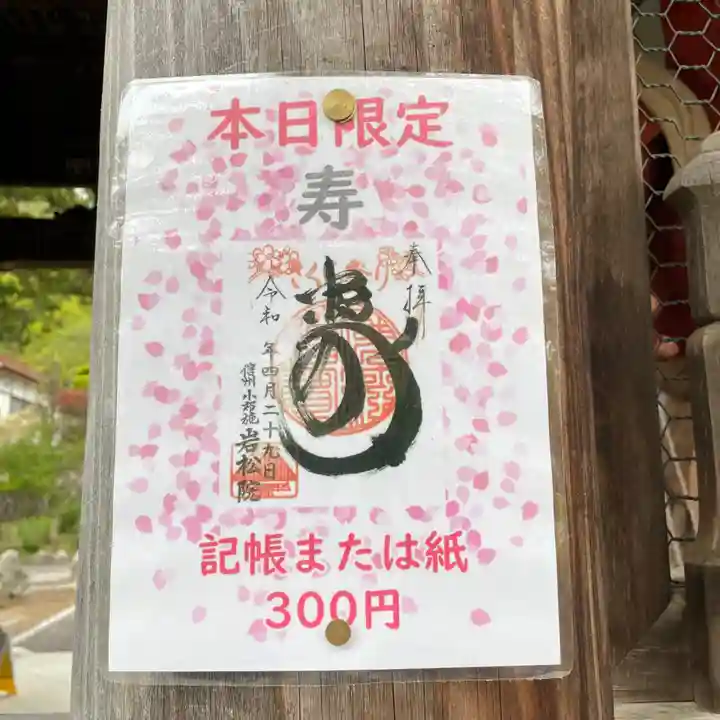 本日限定
寿
奉拝
寿
令和 年四月二十九日
信州小布施
岩松院
記帳または紙
300円